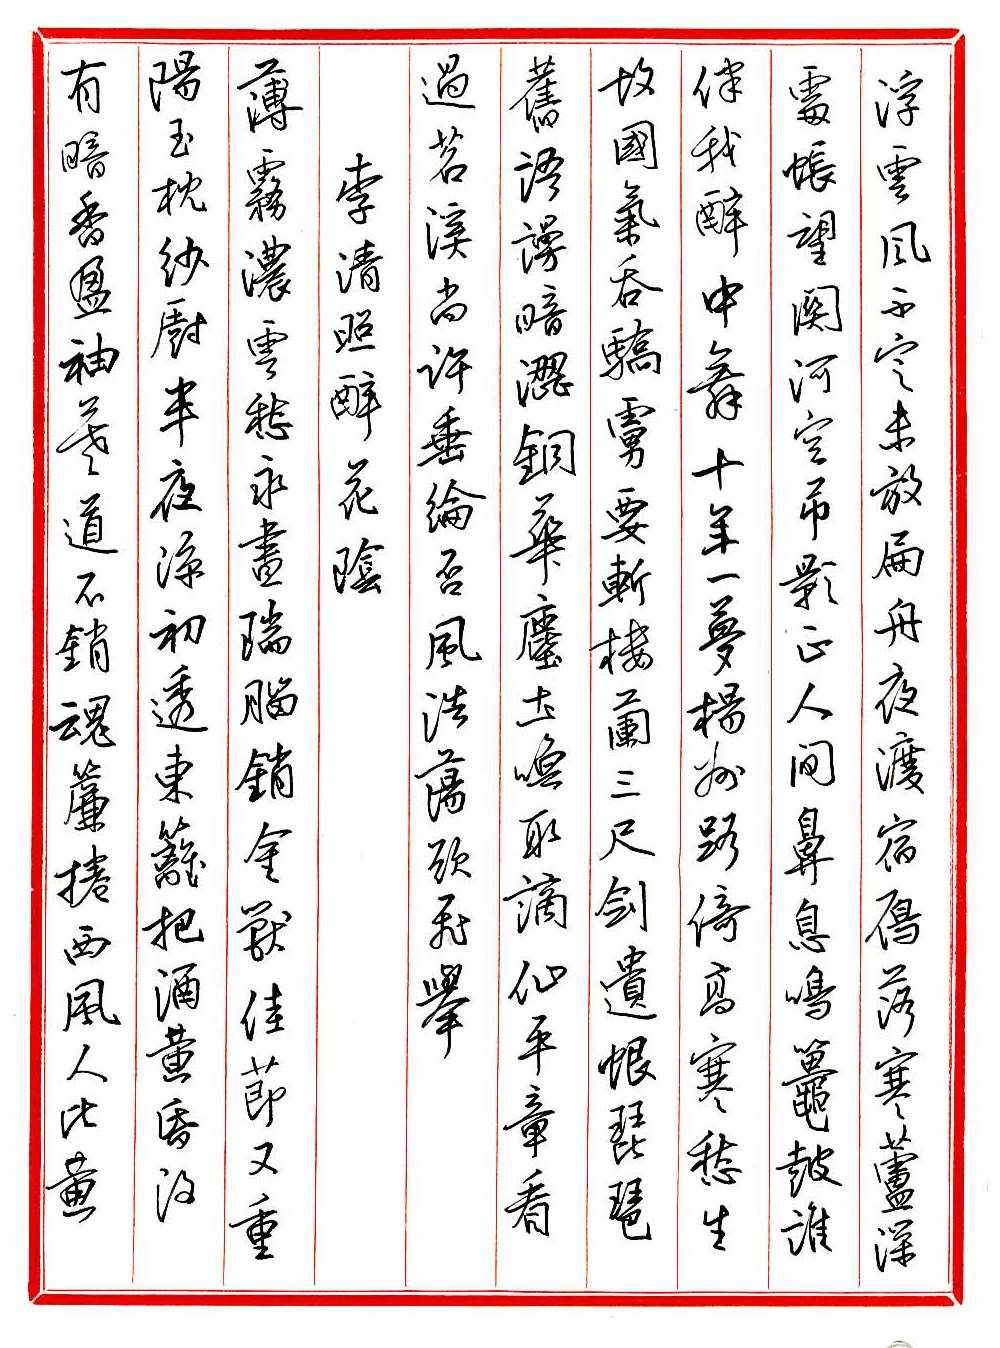 浮雲風不定未放扁舟夜渡宿鴈落寒蘆深
處悵望關河空弔影正人間鼻息鳴鼉鼓誰
伴我醉中舞十年一夢揚州路倚高寒愁生
故國氣吞驕虜要斬樓蘭三尺劍遺恨琵琶
舊語謾暗澀銅華塵土喚取謫仙平章看
過苕溪尚許垂綸否風浩蕩欲飛舉
李清照醉花陰
薄霧濃雲愁永晝瑞腦銷金獸佳節又重
陽玉枕紗廚半夜涼初透東籬把酒黃昏後
有暗香盈袖莫道不銷魂簾捲西風人比黃